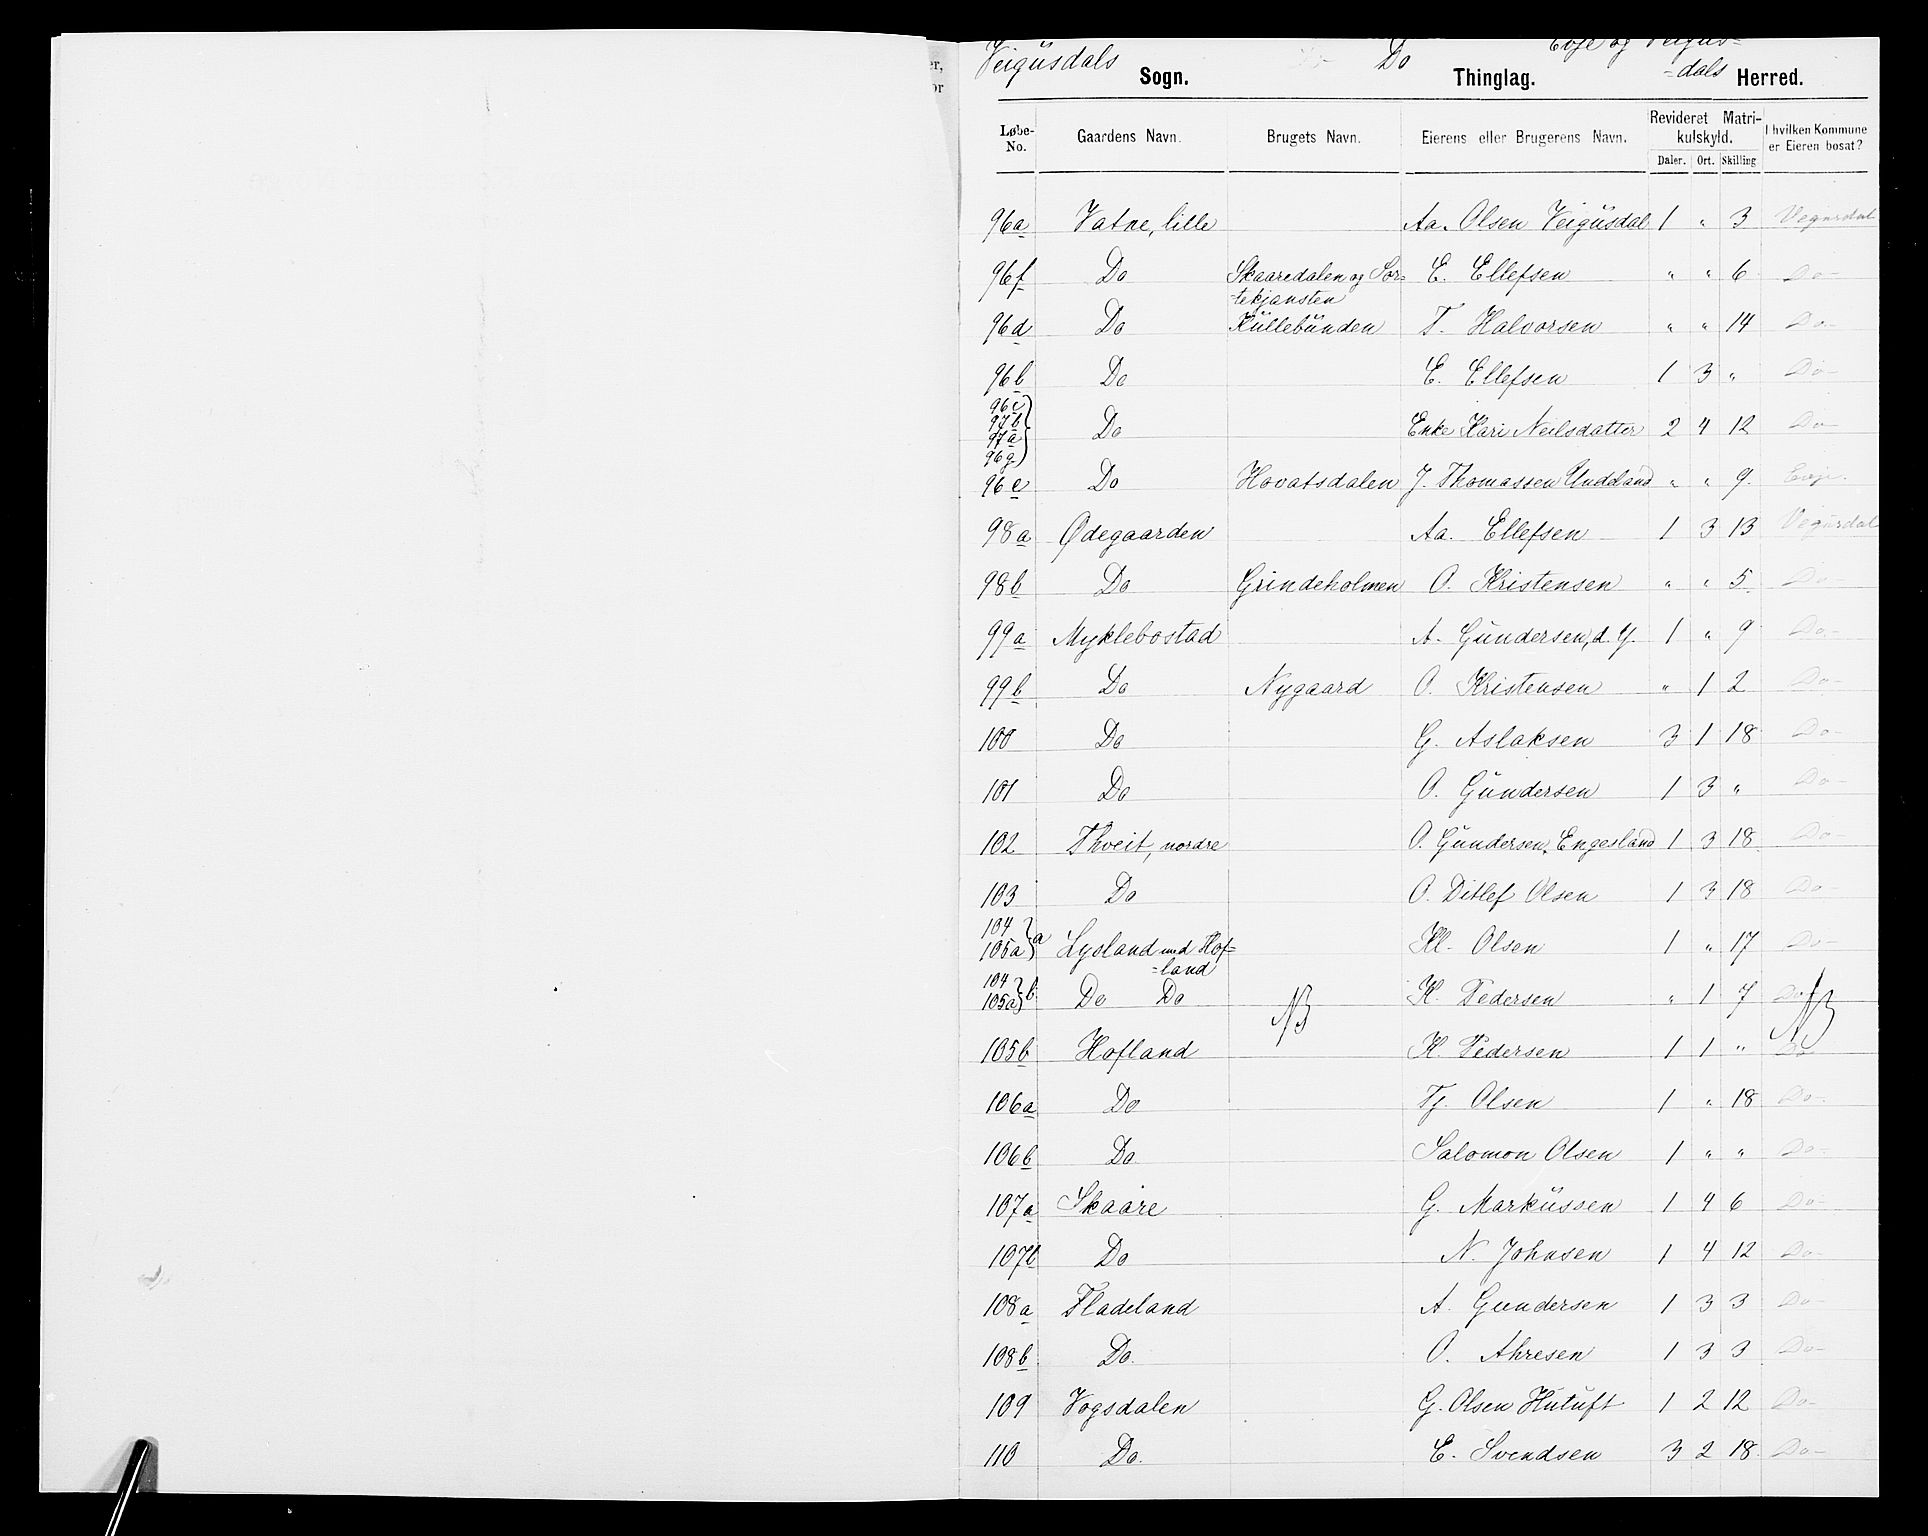 Veigusdals Sogn. Do Thinglag. Evje og Veigus-
-dals Herred.
Løbe-No. Gaardens Navn. Brugets Navn. Eierens eller Brugerens Navn. Revideret Matrikulskyld. Daler. Ort. Skilling I hvilken Kommune er Eieren bosat?
96a Vatne, lille Aa. Olsen Veigusdal 1 " 3 Vegusdal
96f Do Skaaredalen og Sor- E. Ellefsen " " 6 Do-
-tekjansten
96d Do Küllebünden T. Halvorsen " " 14 Do-
96b Do E. Ellefsen 1 3 " Do-
96c
97b
97a Do Enke Kari Neilsdatter 2 4 12 Do-
96g
96e Do Hovatsdalen J. Thomassen Uddeland " " 9 Evje.
98a Ødegaarden Aa. Ellefsen 1 3 13 Vegusdal
98b Do Grindeholmen O. Kristensen " " 5 Do-
99a Myklebostad A. Gündersen, d. Y. 1 " 9 Do-
99b Do Nygaard O. Kristensen " 1 2 Do-
100 Do G. Aslaksen 3 1 18 Do-
101 Do O. Gündersen 1 3 " Do-
102 Thveit, nordre O. Gündersen, Engesland 1 3 18 Do-
103 Do O. Ditlef Olsen 1 3 18 Do-
104
105a } a Lysland med Hof- Kl. Olsen 1 " 17 Do-
-land
104
105a } b Do Do NB K. Pedersen " 1 7 Do NB
105b Hofland K. Pedersen 1 1 " Do
106a Do Tj. Olsen 1 " 18 Do-
106b Do Salomon Olsen 1 " " Do-
107a Skaare G. Markussen 1 4 6 Do-
107b Do N. Johnsen 1 4 12 Do-
108a Fladeland A. Gundersen 1 3 3 Do-
108b Do O. Ahresen 1 3 3 Do-
109 Vogsdalen G. Olsen Hutuft 1 2 12 Do-
110 Do. E. Svendsen 3 2 18 Do-